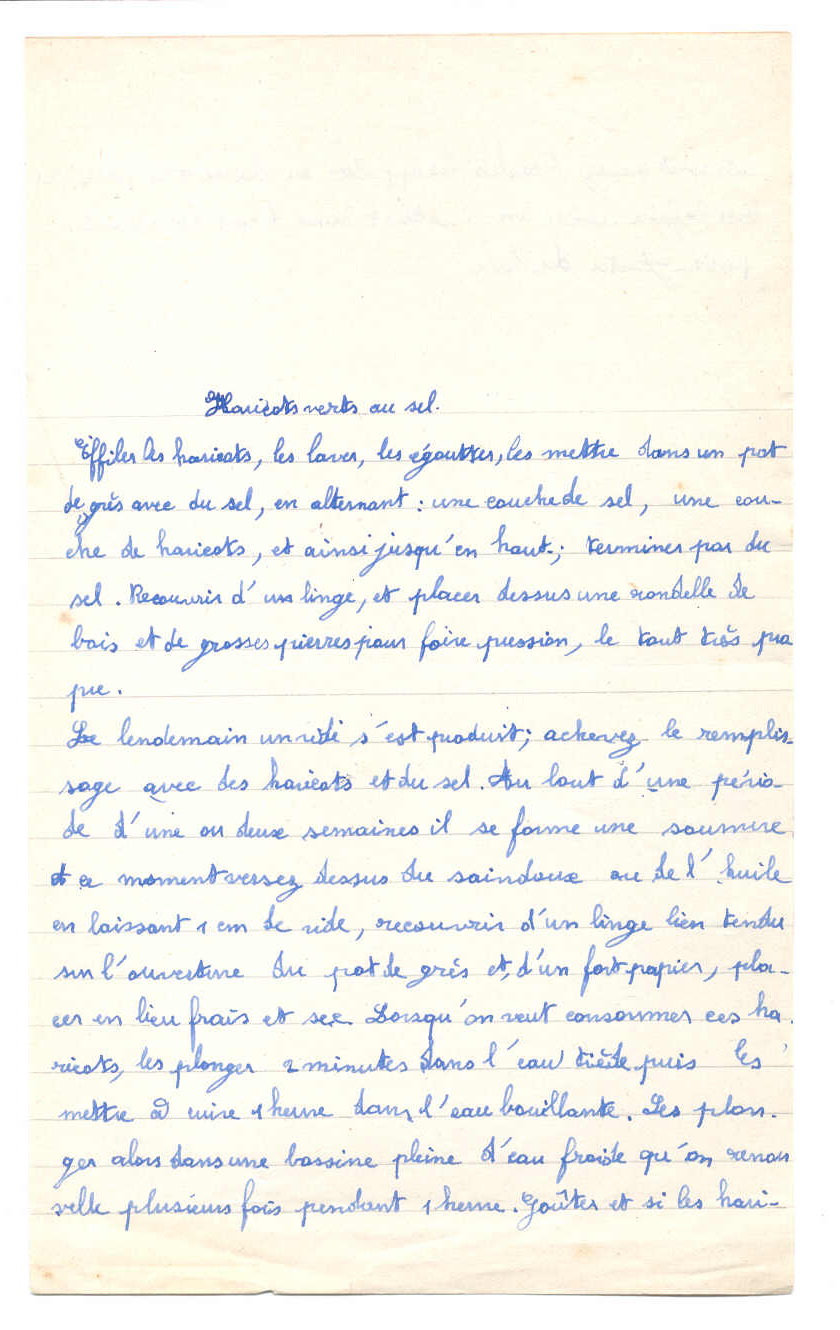 Haricots verts au sel.
Effiler les haricots, les laver, les égoutter, les mettre dans un pot
de grès avec du sel, en alternant : une couche de sel, une cou-
che de haricots, et ainsi jusqu'en haut ; terminer par du
sel. Recouvrir d'un linge, et placer dessus une rondelle de
bois et de grosses pierres pour faire pression, le tout très pro
pre.
Le lendemain un vide s'est produit ; achevez le remplis-
sage avec des haricots et du sel. Au bout d'une pério-
de d'une ou deux semaines il se forme une saumure
et a moment versez dessus du saindoux ou de l'huile
en laissant 1 cm de vide, recouvrir d'un linge bien tendu
sur l'ouverture du pot de grès et, d'un fort papier, pla-
cer en lieu frais et sec. Lorsqu'on veut consommer ces ha
ricots, les plonger 2 minutes dans l'eau tiède puis les
mettre à cuire 1 heure dans l'eau bouillante. Les plon-
ger alors dans une bassine pleine d'eau froide qu'on renou
velle plusieurs fois pendant 1 heure. Goûter et si les hari-